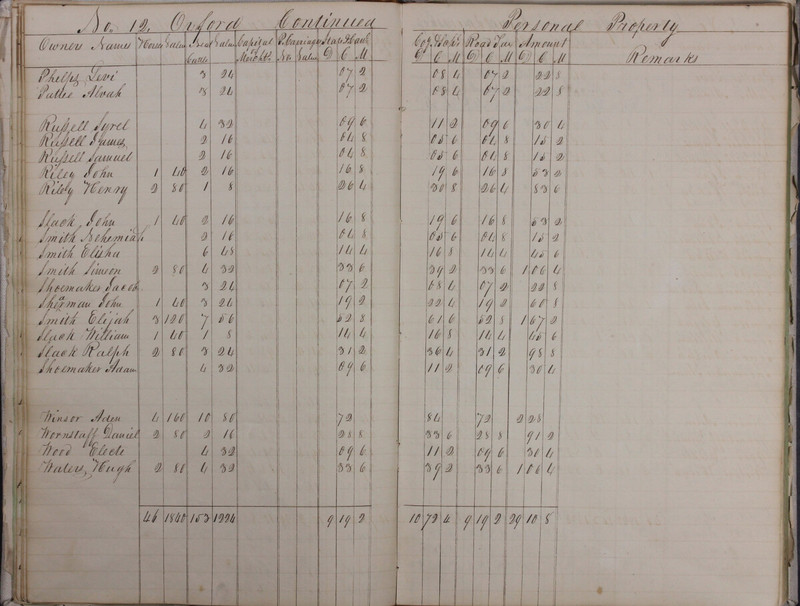 No. 12 Oxford Continued Personal Property
Owners Names Horses Value Neat Cattle Value Capital of Merchts P. Carriages No. Value State & Canal D C M Co. & Hop's D C M Road Tax D C M Amount D C M Remarks
Phelps Levi 3 24 07 2 08 4 07 2 22 8
Alvah 3 24 07 2 08 4 07 2 22 8
Russell Syrel 4 32 09 6 11 2 09 6 30 4
Russell James 2 16 04 8 05 6 04 8 15 2
Russell Samuel 2 16 04 8 05 6 04 8 15 2
Riley John 1 40 2 16 16 8 19 6 16 8 53 2
Henry 2 80 1 8 26 4 30 8 26 4 83 6
Slack John 1 40 2 16 16 8 19 6 16 8 53 2
Smith Nehemiah 2 16 04 8 05 6 04 8 15 2
Smith Elisha 6 48 14 4 16 8 14 4 45 6
Smith Simeon 2 80 4 32 33 6 39 2 33 6 1 06 4
Shoemaker Jacob 3 24 07 2 08 4 07 2 22 8
Sherman John 1 40 3 24 19 2 22 4 19 2 60 8
Smith Elijah 3 120 7 56 52 8 61 6 52 8 1 67 2
Slack William 1 40 1 8 14 4 16 8 14 4 45 6
Slack Ralph 2 80 3 24 31 2 36 4 31 2 98 8
Shoemaker Adam 4 32 09 6 11 2 09 6 30 4
Winsor Aden 4 160 10 80 72 84 72 2 28
Wornstaff Daniel 2 80 2 16 28 8 33 6 28 8 91 2
Wood Electe 4 32 09 6 11 2 09 6 30 4
Waters, Hugh 2 80 4 32 33 6 39 2 33 6 1 06 4
46 1840 153 1224 9 19 2 10 72 4 9 19 2 29 10 8